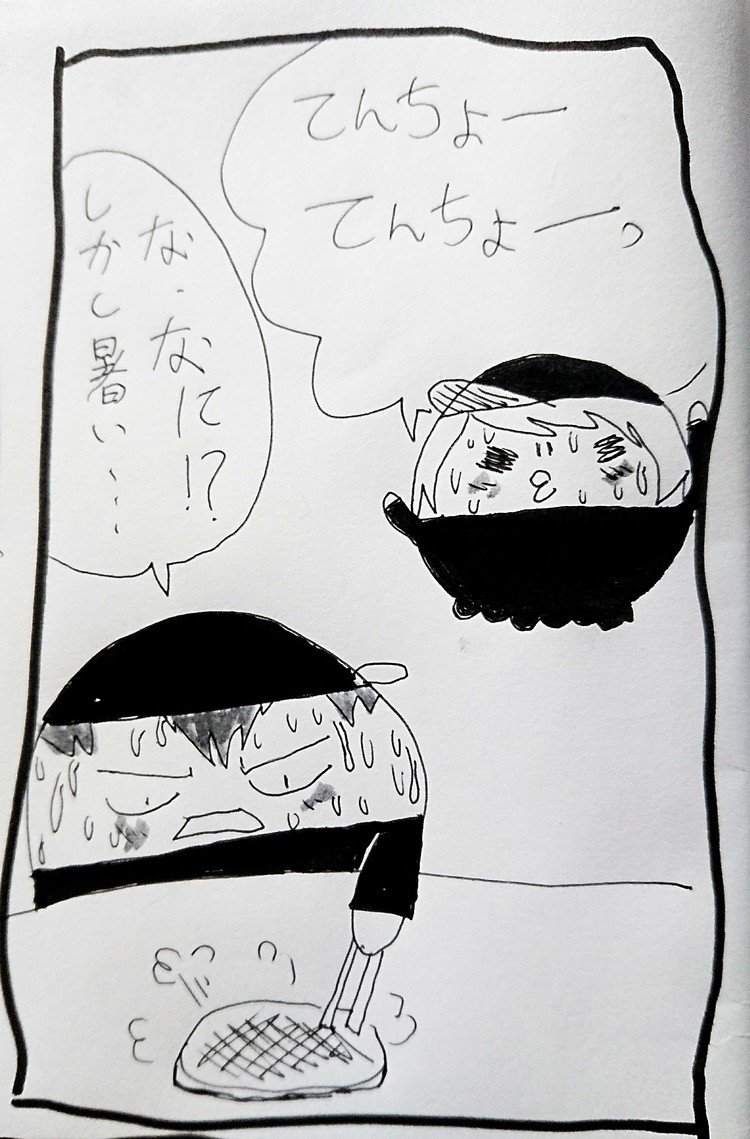 てんちょー
てんちょーっ
な、なに!?
しかし暑い…